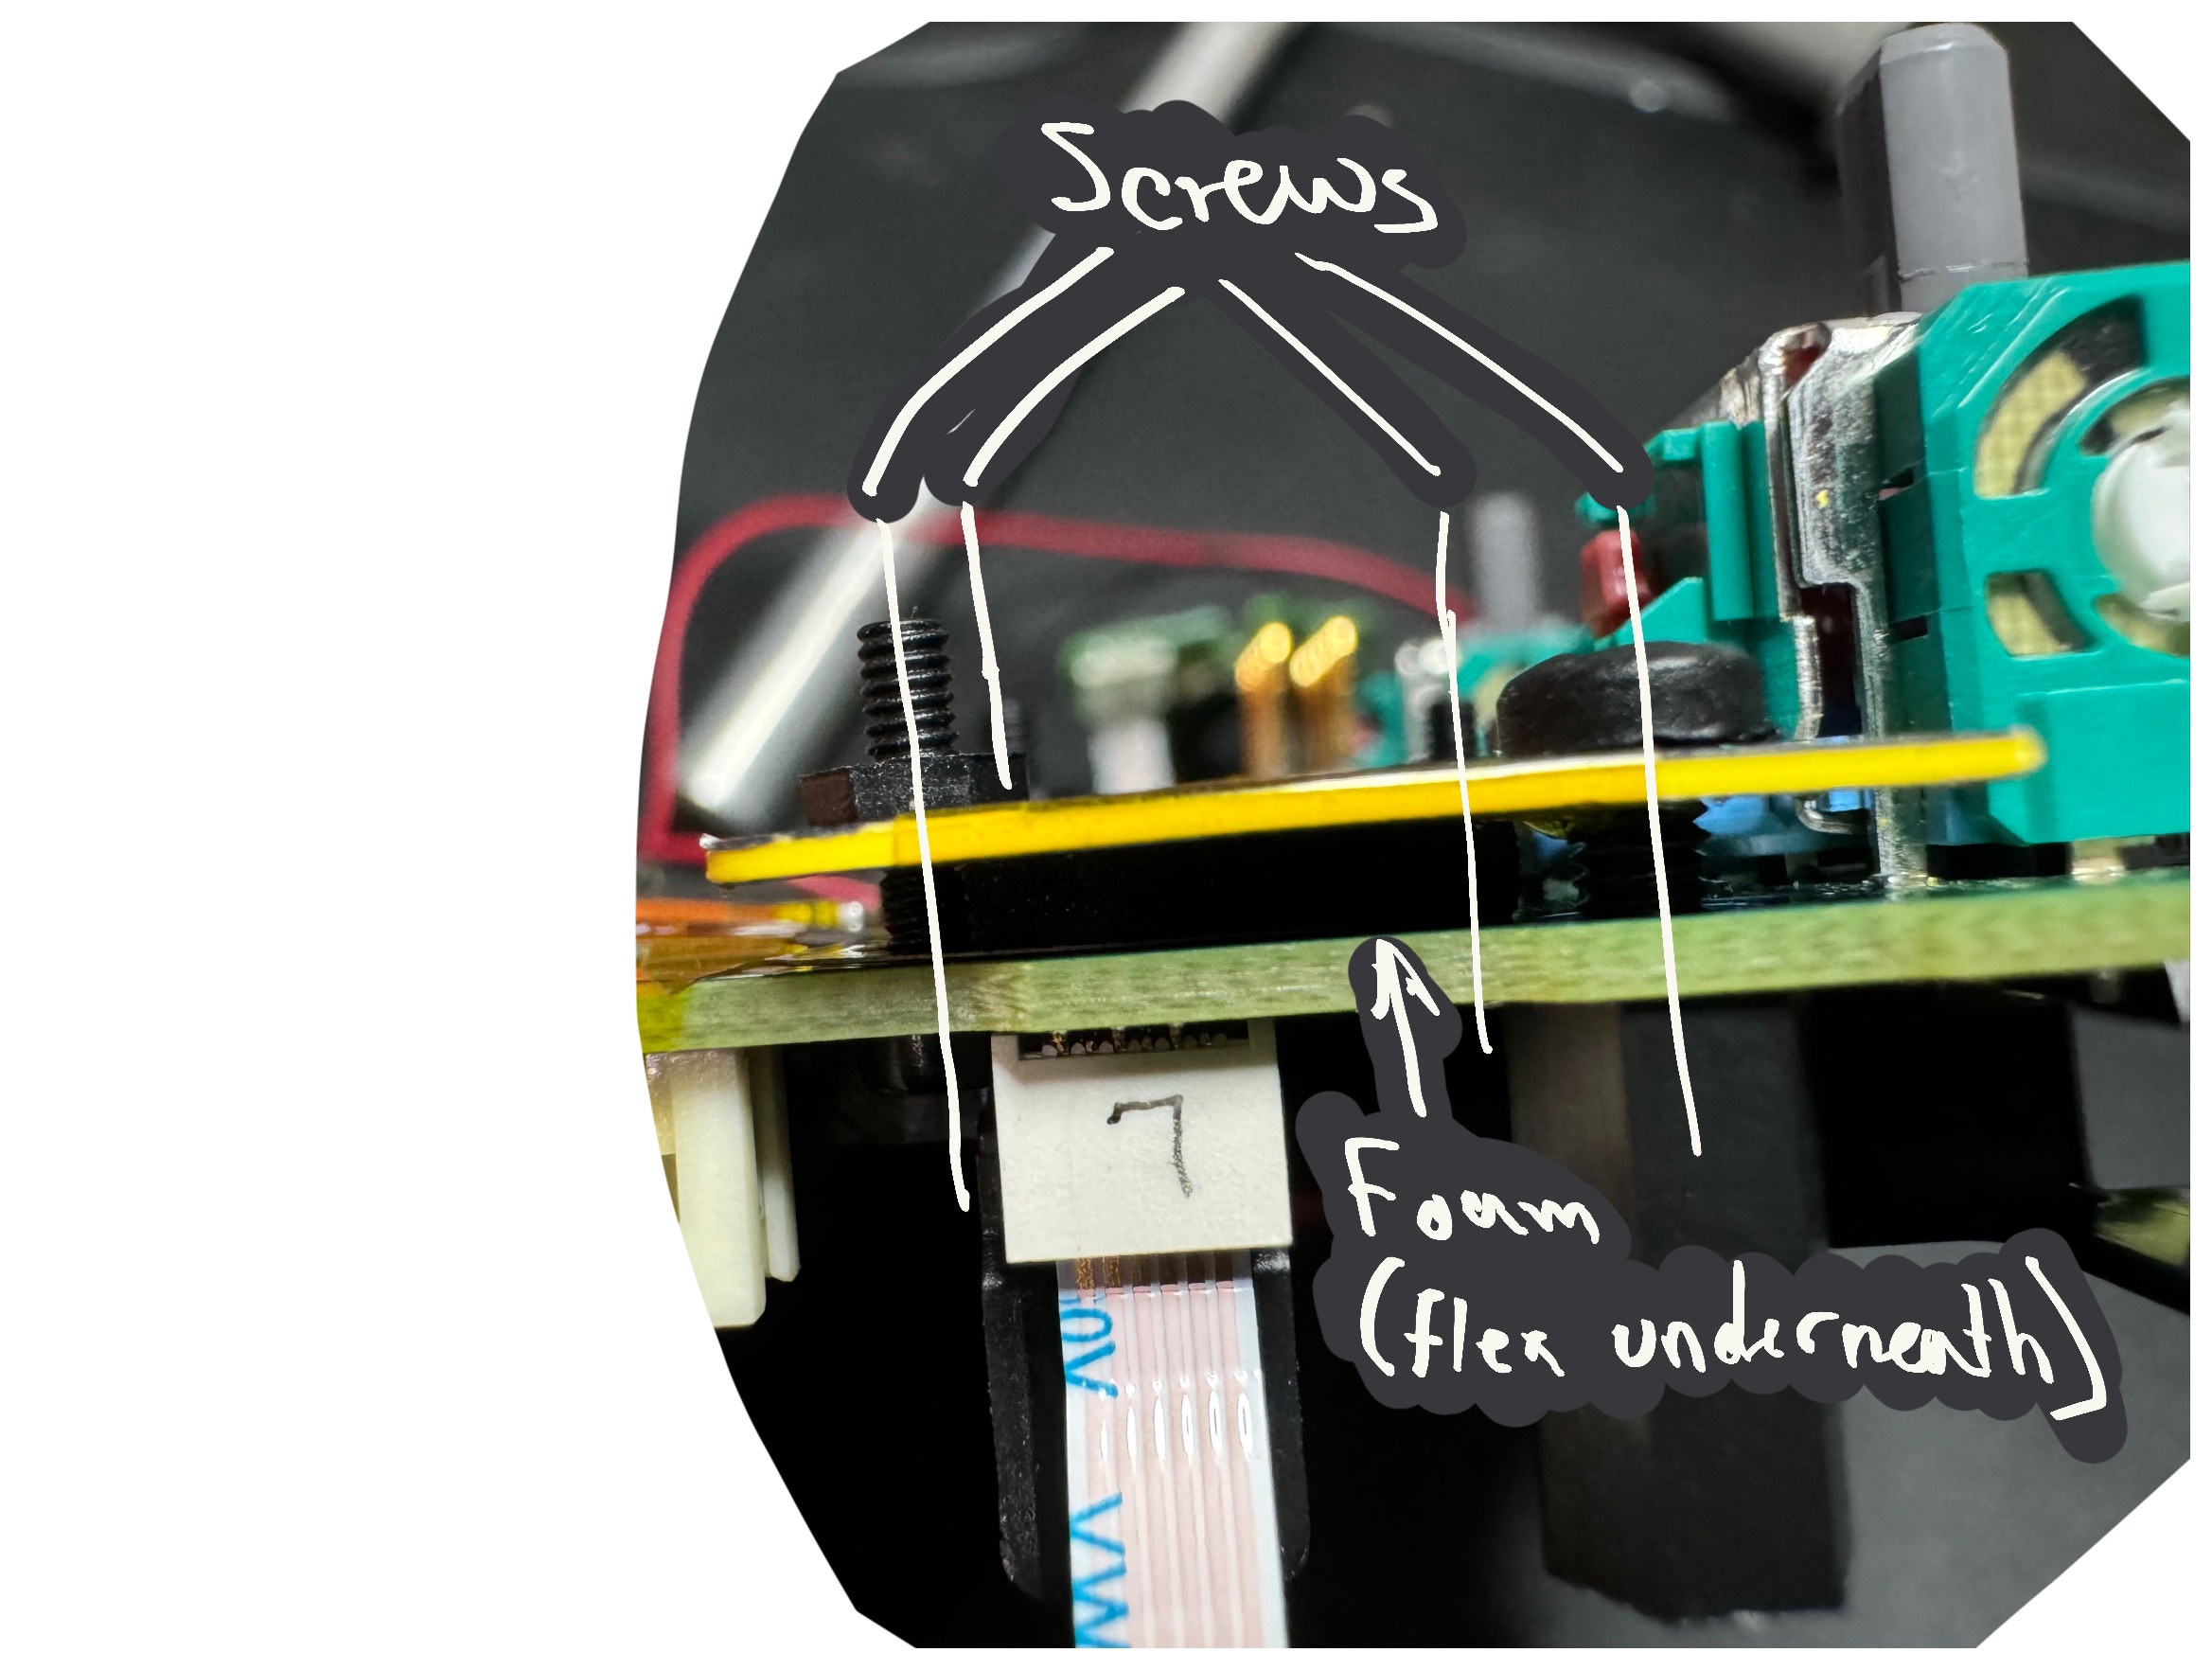 Screws
7
Foam
(flex underneath)
10V
VW